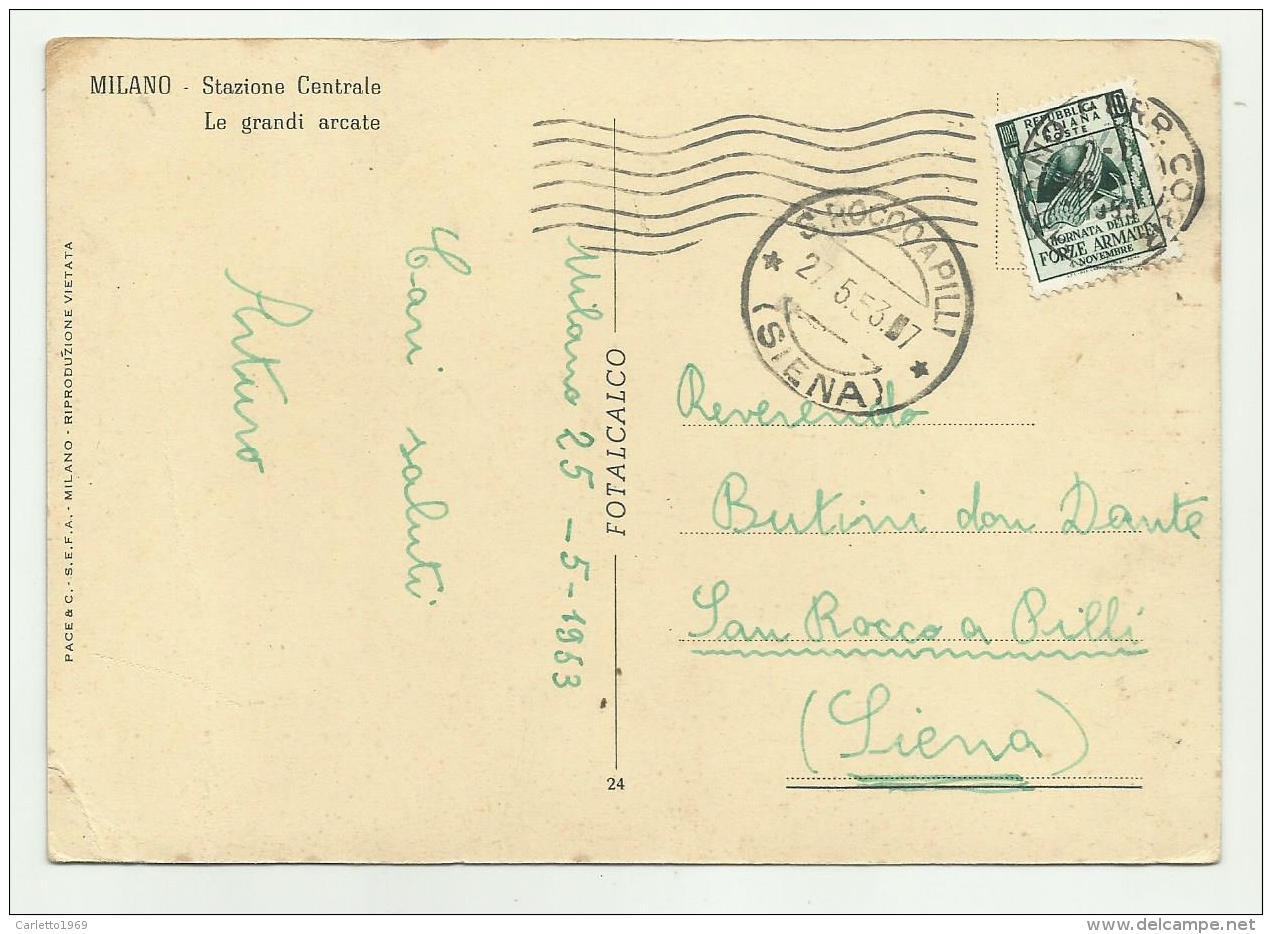 MILANO - Stazione Centrale
Le grandi arcate
PACE & C. - S.E.F.A. - MILANO - RIPRODUZIONE VIETATA
Milano 25-5-1953
Cari saluti
Arturo
FOTALCALCO
24
REPUBBLICA
ITALIANA
POSTE
10
GIORNATA DELLE
FORZE ARMATE
4 NOVEMBRE
S. ROCCO A PILLI
27.5.53.
(SIENA)
Reverendo
Butini don Dante
San Rocco a Pilli
(Siena)
Carletto1969
www.delcampe.net